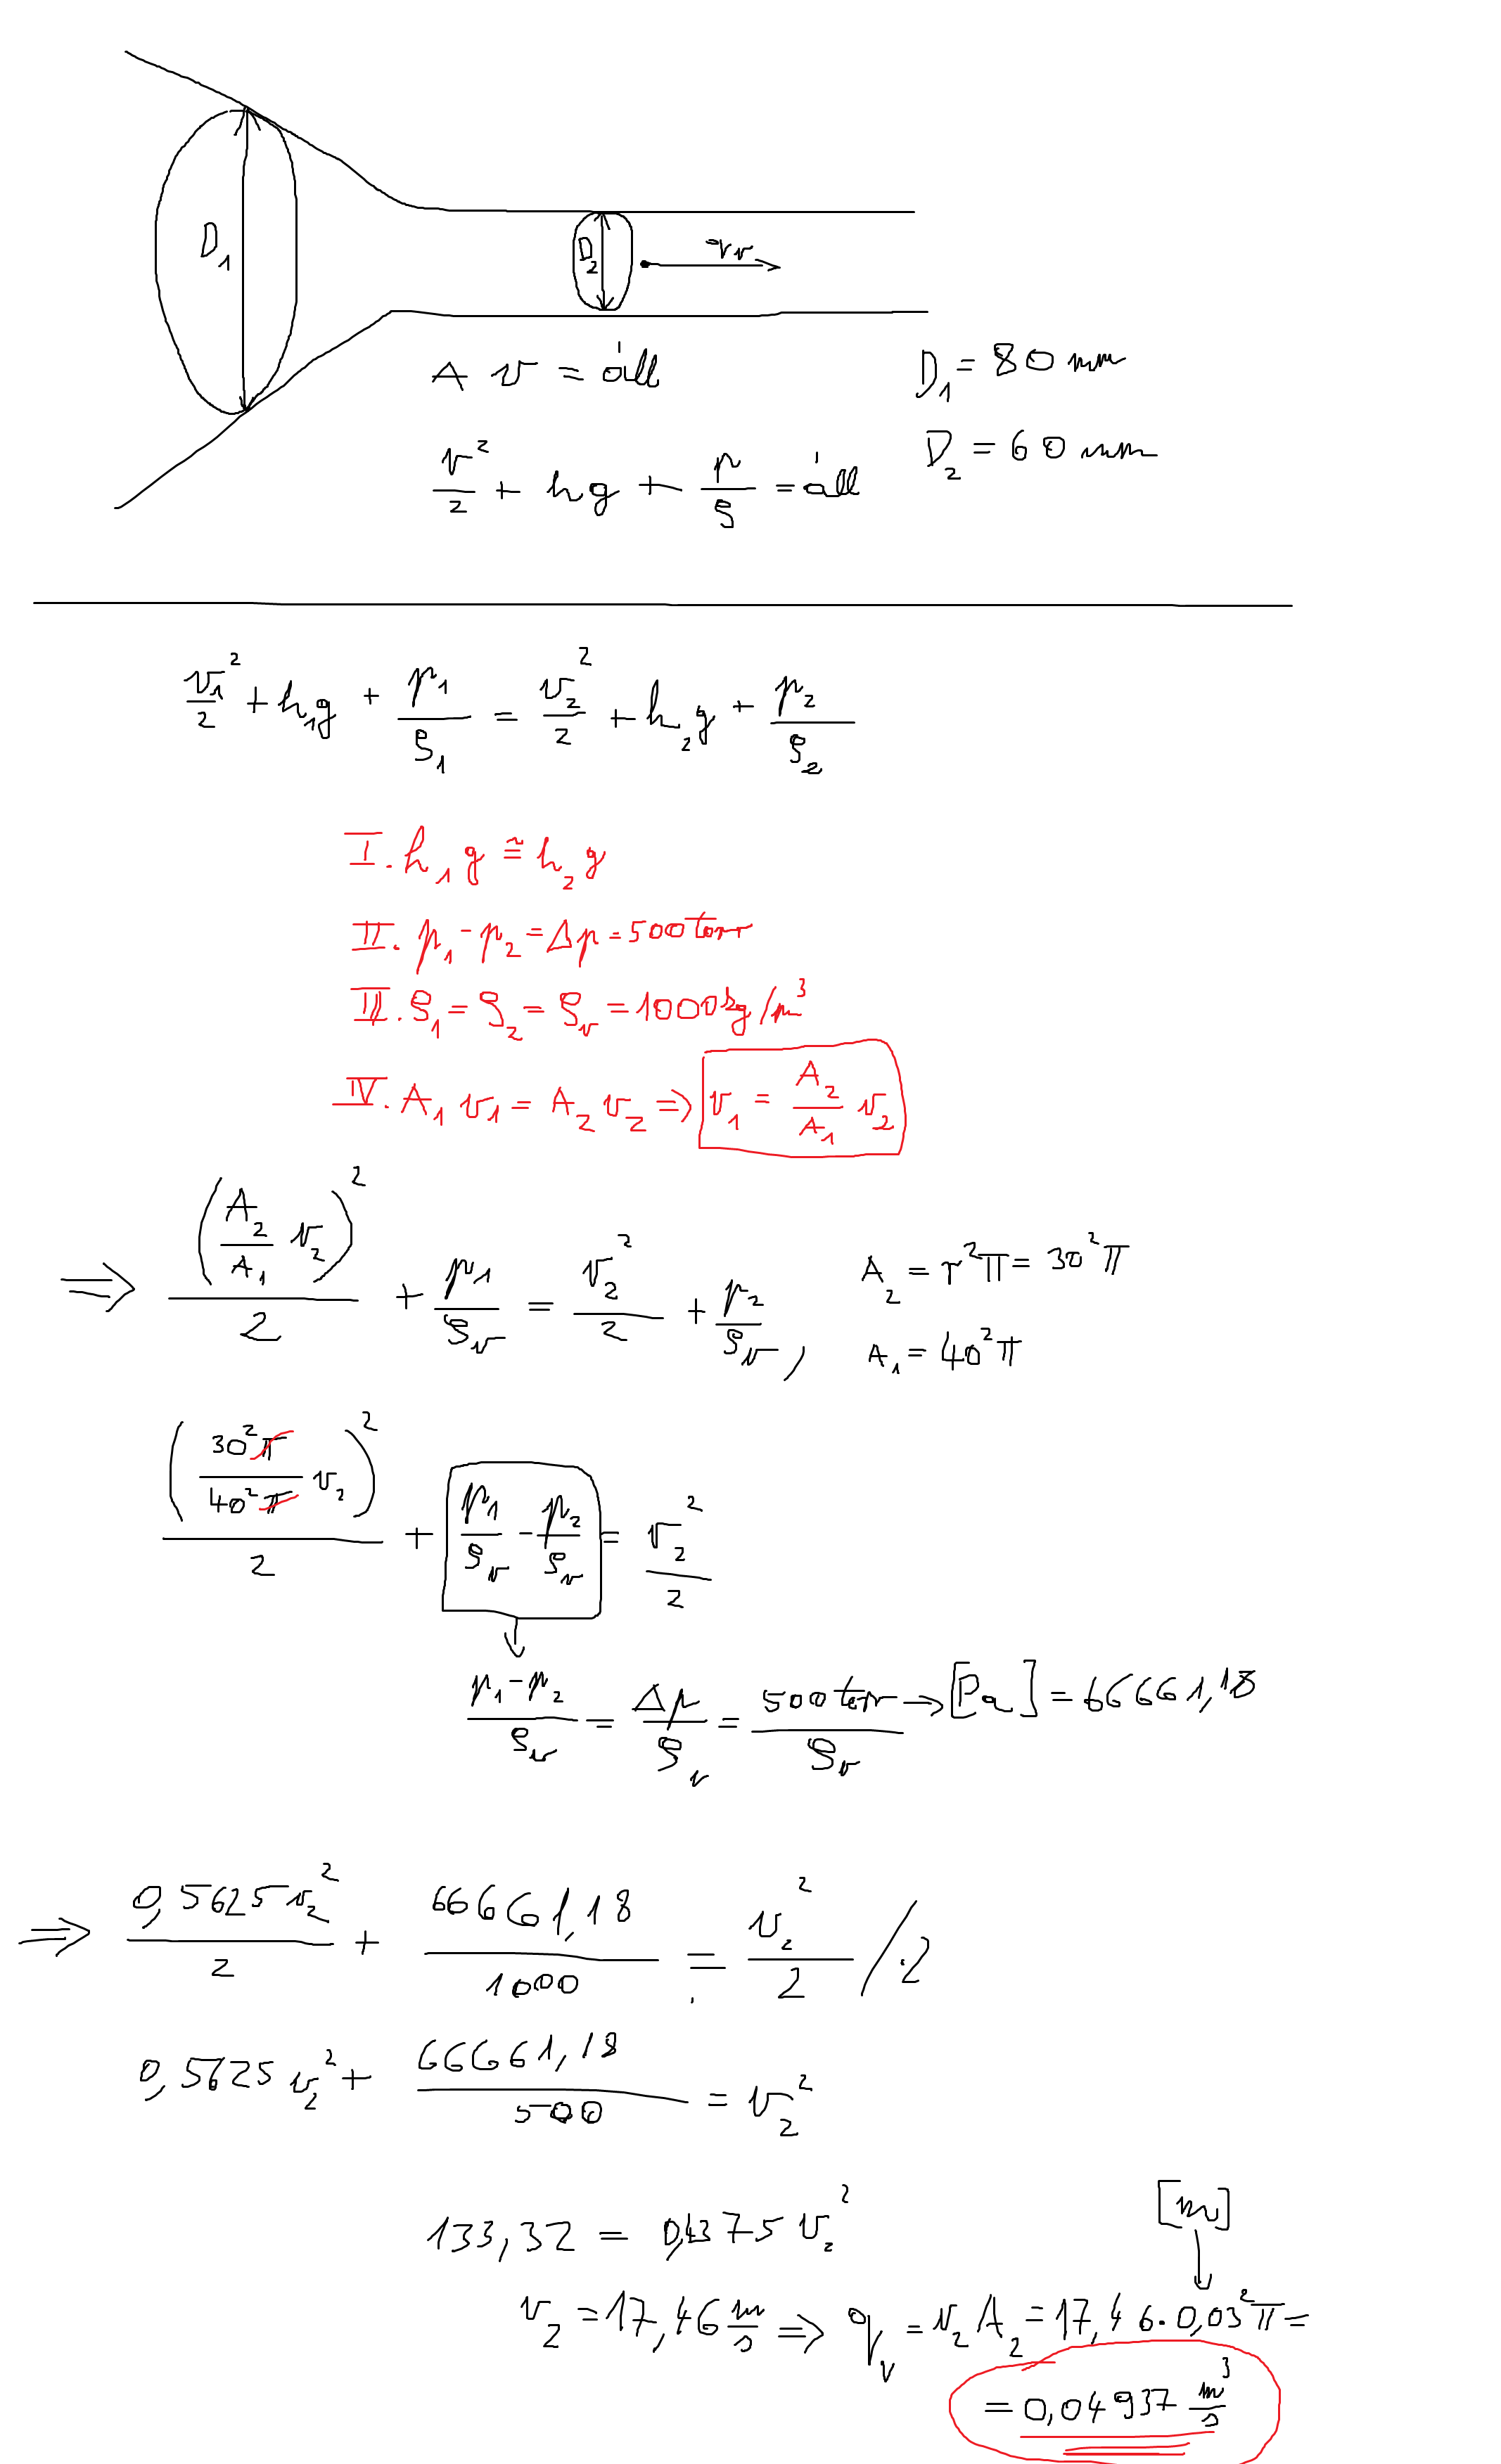 D₁
D₂
q_v
A v = áll
D₁ = 80 mm
v²/2 + hg + p/ρ = áll
D₂ = 60 mm
v₁²/2 + h₁g + p₁/ρ₁ = v₂²/2 + h₂g + p₂/ρ₂
I. h₁g ≅ h₂g
II. p₁ - p₂ = Δp = 500 torr
III. ρ₁ = ρ₂ = ρ_v = 1000 kg/m³
IV. A₁ v₁ = A₂ v₂ ⇒ v₁ = A₂/A₁ v₂
⇒ (A₂/A₁ v₂)²/2 + p₁/ρ_v = v₂²/2 + p₂/ρ_v, A₂ = r²π = 30²π
A₁ = 40²π
(30²π/40²π v₂)²/2 + p₁/ρ_v - p₂/ρ_v = v₂²/2
(p₁ - p₂)/ρ_v = Δp/ρ_v = 500 torr/ρ_v → [Pa] = 66661,18
⇒ 0,5625 v₂²/2 + 66661,18/1000 = v₂²/2 /·2
0,5625 v₂² + 66661,18/500 = v₂²
133,32 = 0,4375 v₂²
[m]
v₂ = 17,46 m/s ⇒ q_v = v₂ A₂ = 17,46 · 0,03²π =
= 0,04937 m³/s